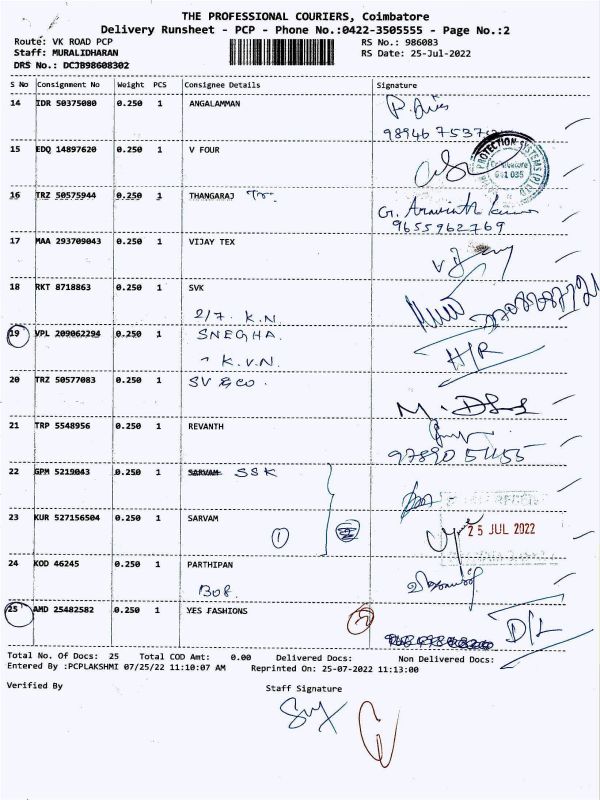 THE PROFESSIONAL COURIERS, Coimbatore
Delivery Runsheet - PCP - Phone No.:0422-3505555 - Page No.:2
Route: VK ROAD PCP RS No.: 986083
Staff: MURALIDHARAN RS Date: 25-Jul-2022
DRS No.: DCJB98608302
S No Consignment No Weight PCS Consignee Details Signature
14 IDR 50375080 0.250 1 ANGALAMMAN
15 EDQ 14897620 0.250 1 V FOUR
PROTECTION SYSTEMS (P) LTD
Coimbatore
641 035
16 TRZ 50575944 0.250 1 THANGARAJ Tr.
G. Aravinth Kumar
9655962769
17 MAA 293709043 0.250 1 VIJAY TEX
18 RKT 8718863 0.250 1 SVK
2/7. K.N
19 VPL 209062294 0.250 1 SNEGHA.
K.V.N. H/R
20 TRZ 50577083 0.250 1 SV & CO.
21 TRP 5548956 0.250 1 REVANTH
22 GPM 5219043 0.250 1 SARVAM SSK
23 KUR 527156504 0.250 1 SARVAM
1
25 JUL 2022
24 KOD 46245 0.250 1 PARTHIPAN
BOB.
25 AMD 25482582 0.250 1 YES FASHIONS
D/L
Total No. Of Docs: 25 Total COD Amt: 0.00 Delivered Docs: Non Delivered Docs:
Entered By :PCPLAKSHMI 07/25/22 11:10:07 AM Reprinted On: 25-07-2022 11:13:00
Verified By Staff Signature